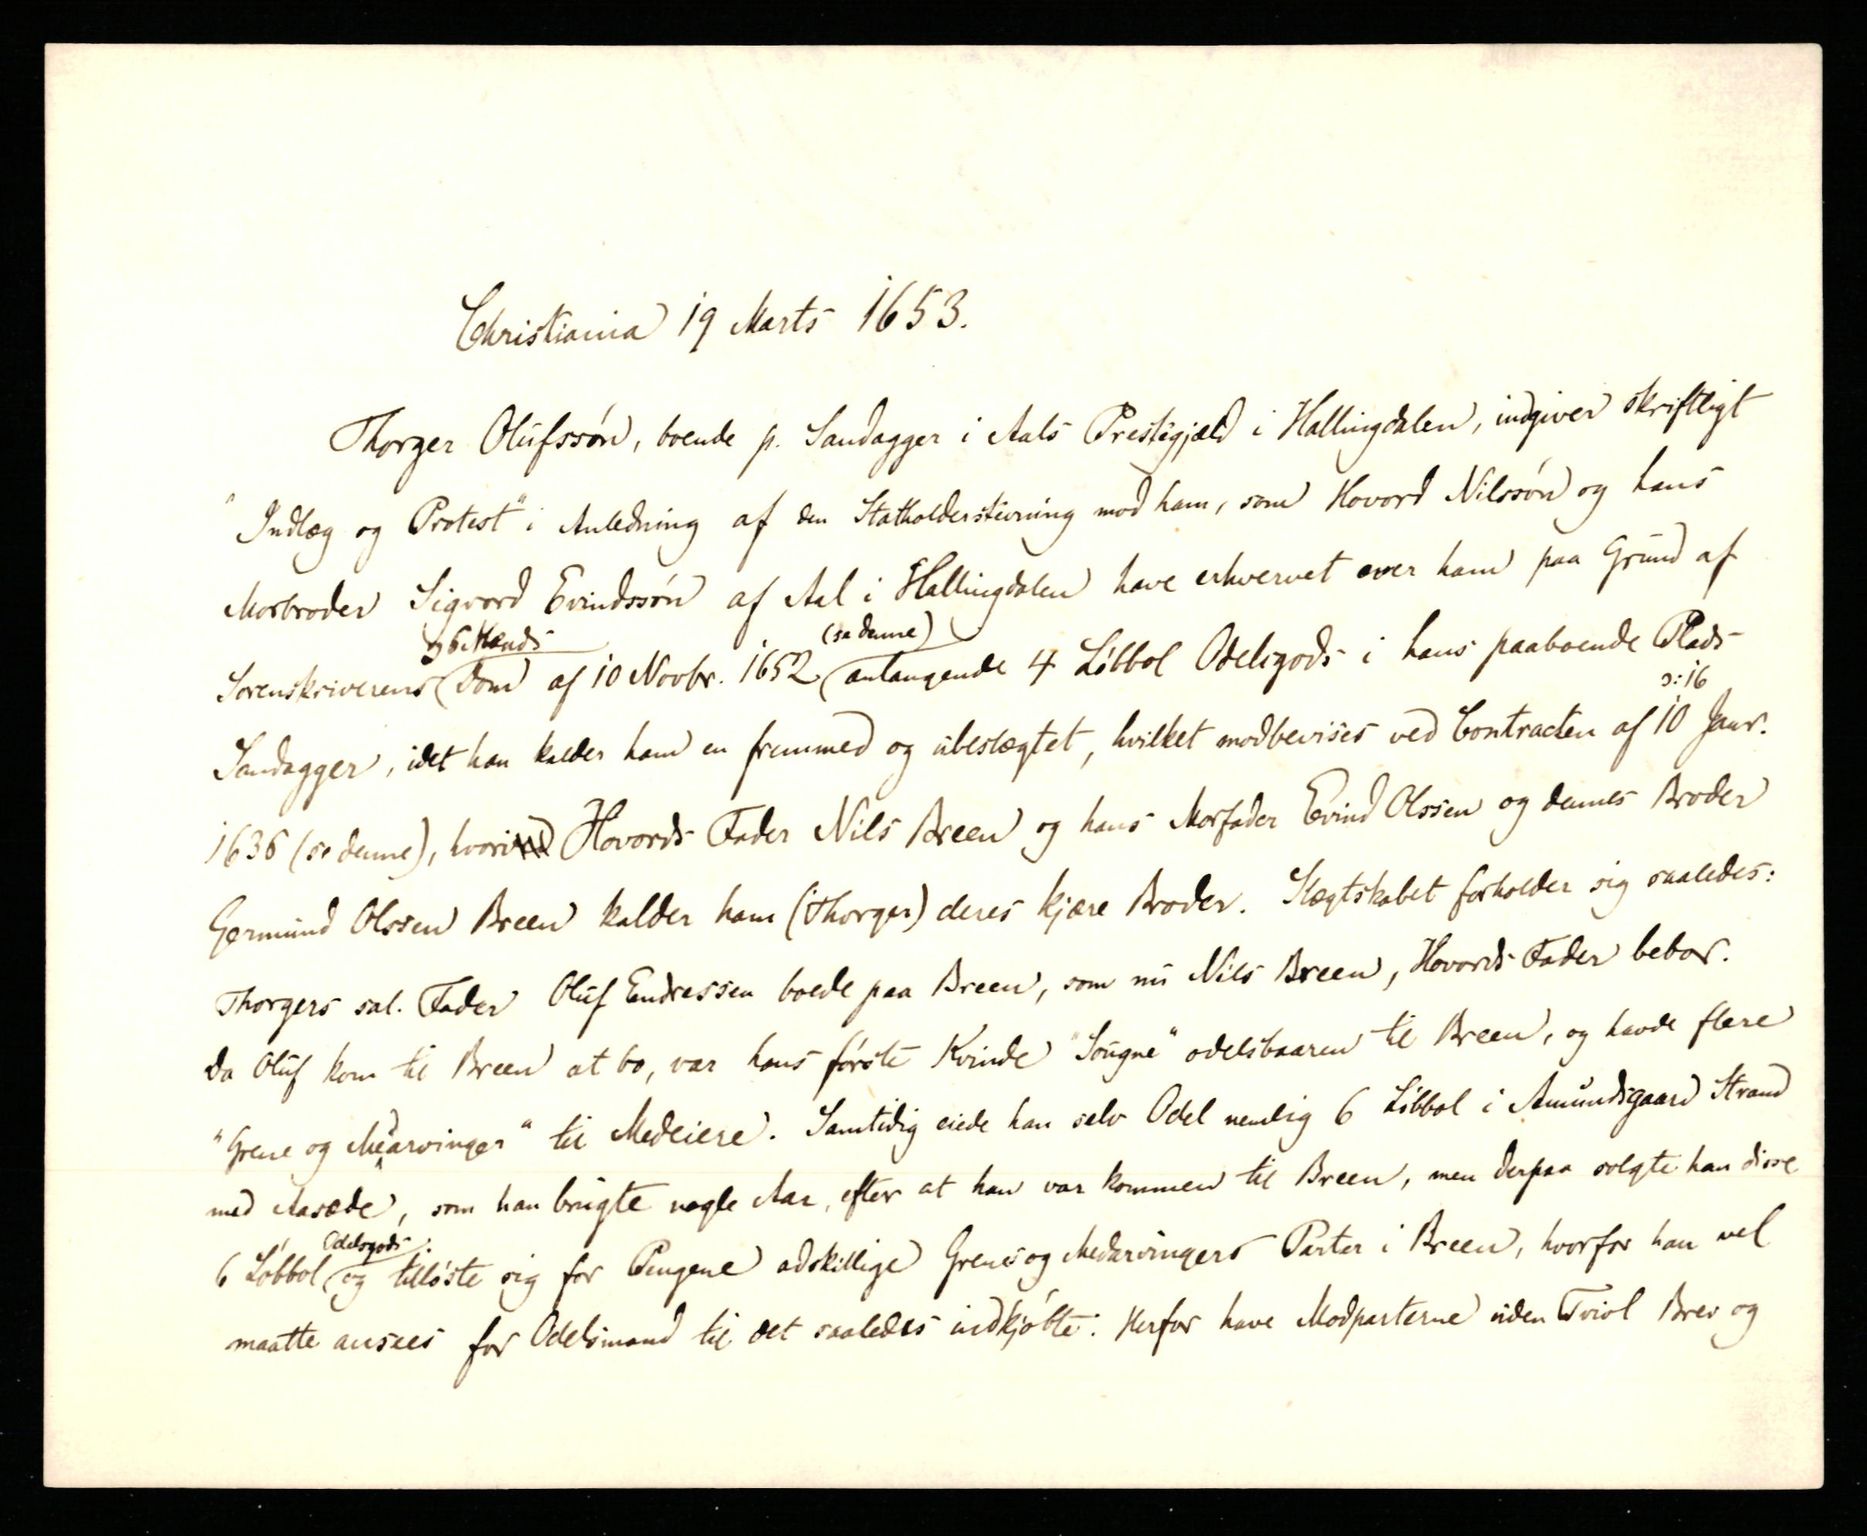 Christiania 19 Marts 1653.
Thorger Olufssøn, boende p. Sandagger i Aals Prestegjæld i Hallingdalen, indgiver skriftligt
"Indlæg og Protest" i Anledning af den Statholderstevning mod ham, som Hovord Nilssøn og hans
Morbroder Sigvord Evindssøn af Aal i Hallingdalen have erhvervet over ham paa Grund af
Sorenskriverens og 6 Mænds Dom af 10 Novbr. 1652 (se denne) antangende 4 Løbbol Odelsgods i hans paaboende Plads
Sandagger, idet han kalder ham en fremmed og ubeslægtet, hvilket modbevises ved Contracten af 10 ɔ: 16 Janr.
1636 (se denne), hvori Hovords Fader Nils Breen og hans Morfader Evind Olssen og dennes Broder
Germund Olssen Breen kalder ham (Thorger) deres kjære Broder. Slægtskabet forholder sig saaledes:
Thorgers sal. Fader Oluf Endressen boede paa Breen, som nu Nils Breen, Hovords Fader bebor.
Da Oluf kom til Breen at bo, var hans første Kvinde "Sougne" odelsbaaren til Breen, og havde flere
"Grene og Medarvinger" til Medeiere. Samtidig eiede han selv Odel nemlig 6 Løbbol i Amundsgaard Strand
med Aasæde, som han brugte nogle Aar, efter at han var kommen til Breen, men derpaa solgte han disse
6 Løbbol Odelsgods og tilløste sig for Pengene adskillige Grenes og Medarvingers Parter i Breen, hvorfor han vel
maatte ansees for Odelsmand til det saaledes indkjøbte. Herfor have Modparterne uden Tviol Brev og